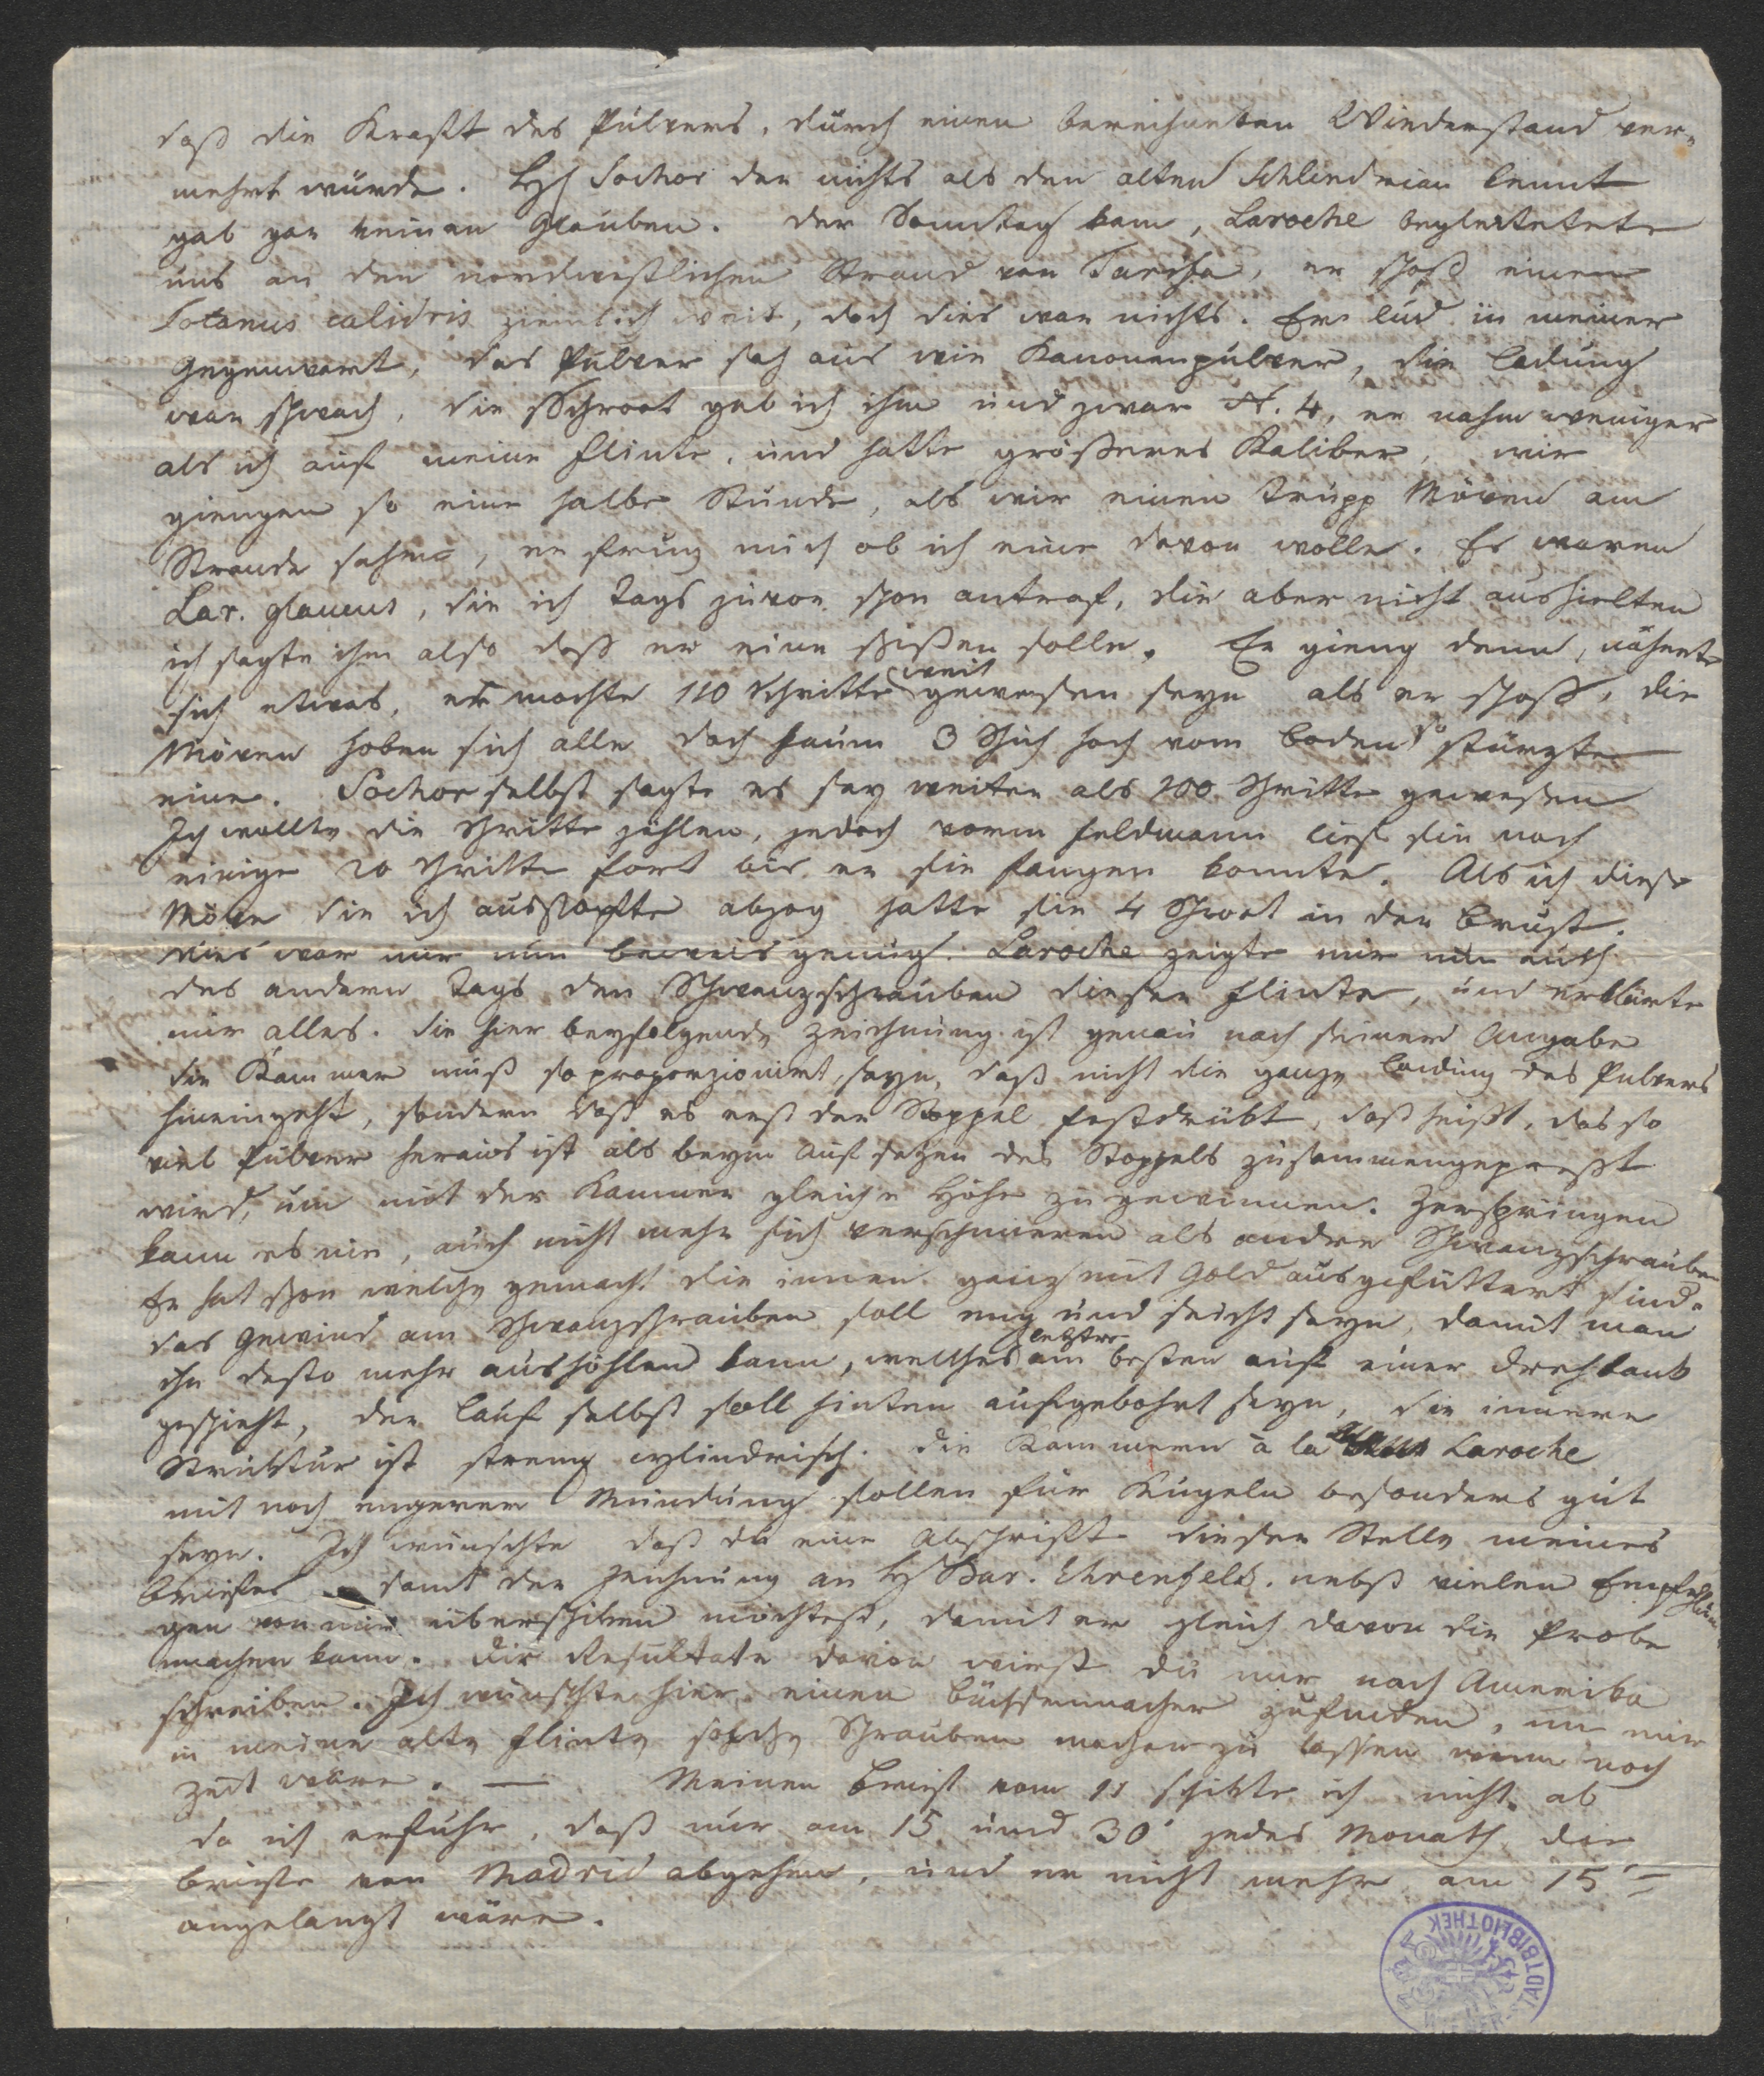 daß die Kraft des Pulvers, durch einen berechneten Wiederstand ver„
mehrt würde. H Sochor der nichts als den alten Schlendrian kennt
gab gar keinen Glauben. Der Sonntag kam, Laroche begleitetete
uns an den nordwestlichen Strand von Tarifa, er schoß einen
Totanus calidris ziemlich weit, doch dies war nichts. Er lud in meiner
Gegenwart, das Pulver sah aus wie Kanonenpulver, die Ladung
war schwach, die Schroot gab ich ihm und zwar N. 4, er nahm weniger
als ich auf meine Flinte, und hatte größeres Kaliber, wir
giengen so eine halbe Stunde, als wir einen Trupp Möven am
Strande sahen, er frug mich ob ich eine davon wolle. Es waren
Lar. glaucus, die ich Tags zuvor schon antraf, die aber nicht aushielten
ich sagte ihm also daß er eine schißen solle. Er gieng denn, näherte
sich etwas, es mochte 110 Schritte weit gewesen seyn als er schoß, die
Möven hoben sich alle doch kaum 3 Schuh hoch vom Boden so stürzte
eine. Sochor selbst sagte es sey weiter als 100 Schritte gewesen
Ich wollte die Schritte zählen, jedoch vorm Feldmann lief sie noch
einige 20 Schritte fort bis er sie fangen konnte. Als ich diese
Möve die ich ausstopfte abzog hatte sie 4 Schrot in der Brust.
dies war mir nun Beweis genug. Laroche zeigte mir nun auch
des andern Tags den Schwanzschrauben dieser Flinte, und erklärte
mir alles. die hier beyfolgende Zeichnung ist genau nach seiner Angabe
die Kammer muß so proporzionirt seyn, daß nicht die ganze Ladung des Pulvers
hineingeht, sondern daß es erst der Stoppel festdrückt, daß heißt, das so
viel Pulver heraus ist als beym Aufsetzen des Stoppels zusammengepreßt
wird, um mit der Kammer gleiche Höhe zu gewinnen. Zerspringen
kann es nie, auch nicht mehr sich verschmieren als andre Schwanzschrauben
Er hat schon welche gemacht die innen ganz mit Gold ausgefüttert sind.
das Gewind am Schwanzschrauben soll eng und seicht seyn, damit man
ihn desto mehr aushöhlen kann, welches letztre am besten auf einer Drehbank
geschieht, der Lauf selbst soll hinten aufgebohrt seyn, die innere
Struktur ist streng cylindrisch. die Kammern à la Laroche
mit noch engerer Mündung sollen für Kugeln besonders gut
seyn. Ich wünschte daß du eine Abschrift dieser Stelle meines
Briefes samt der Zeichnung an H Bar. Ehrenfels. nebst vielen Empfehlun
gen von mir überschiken möchtest, damit er gleich davon die Probe
machen kann. Die Resultate davon wirst du mir nach Amerika
schreiben. Ich wünschte hier einen Büchsenmacher zufinden, um mir
in meine alte Flinte solche Schrauben machen zu lassen wenn noch
Zeit wäre. — Meinen Brief vom 11 schikte ich nicht ab
da ich erfuhr, daß nur am 15 und 30' jedes Monath die
Briefe von Madrid abgehen, und er nicht mehr am 15'
angelangt wäre.
STADTBIBLIOTHEK
WIENER